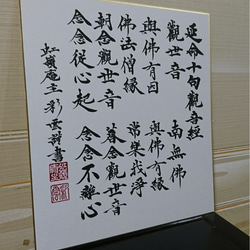 延命十句觀音經
觀世音 南無佛
與佛有因 與佛有緣
佛法僧緣 常樂我淨
朝念觀世音 暮念觀世音
念念從心起 念念不離心
虹嶺庵主 彩雲謹書